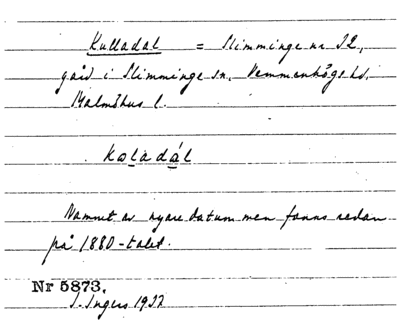 Kulladal = Slimminge nr 32,
gård i Slimminge sn, Vemmenhögs hd,
Malmöhus l.
koladál
Namnet av nyare datum men fanns redan
på 1880-talet.
Nr 5873.
I. Ingers 1927